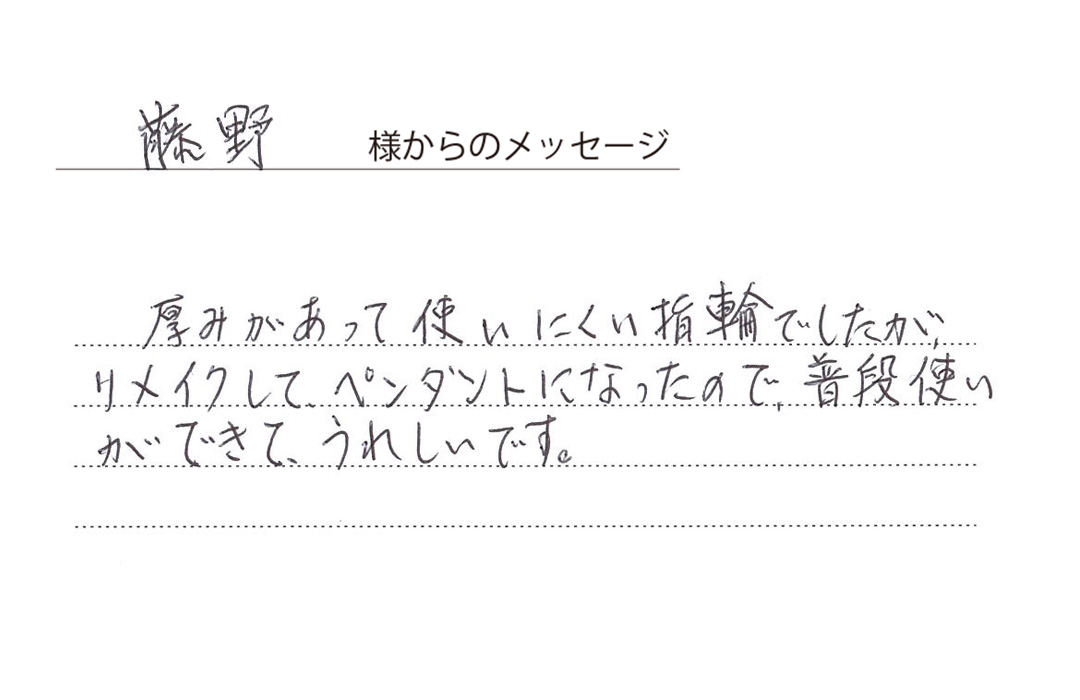 藤野 様からのメッセージ
厚みがあって使いにくい指輪でしたが、
リメイクして、ペンダントになったので、普段使い
ができて、うれしいです。